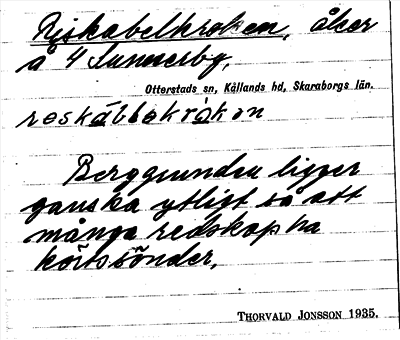 Riskabelkroken, åker
å 4 Sunnerby,
Otterstads sn, Kållands hd, Skaraborgs län.
reskábbəkròkən
Berggrunden ligger
ganska ytligt så att
många redskap ha
körts sönder.
THORVALD JONSSON 1935.